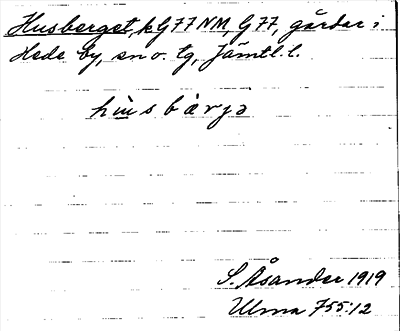 Husberget, kG77NM, G77, gårdar i
Hede by, sn o. tg, Jämtl. l.
hùsbàrjə
S. Åsander 1919
Ulma 755:12